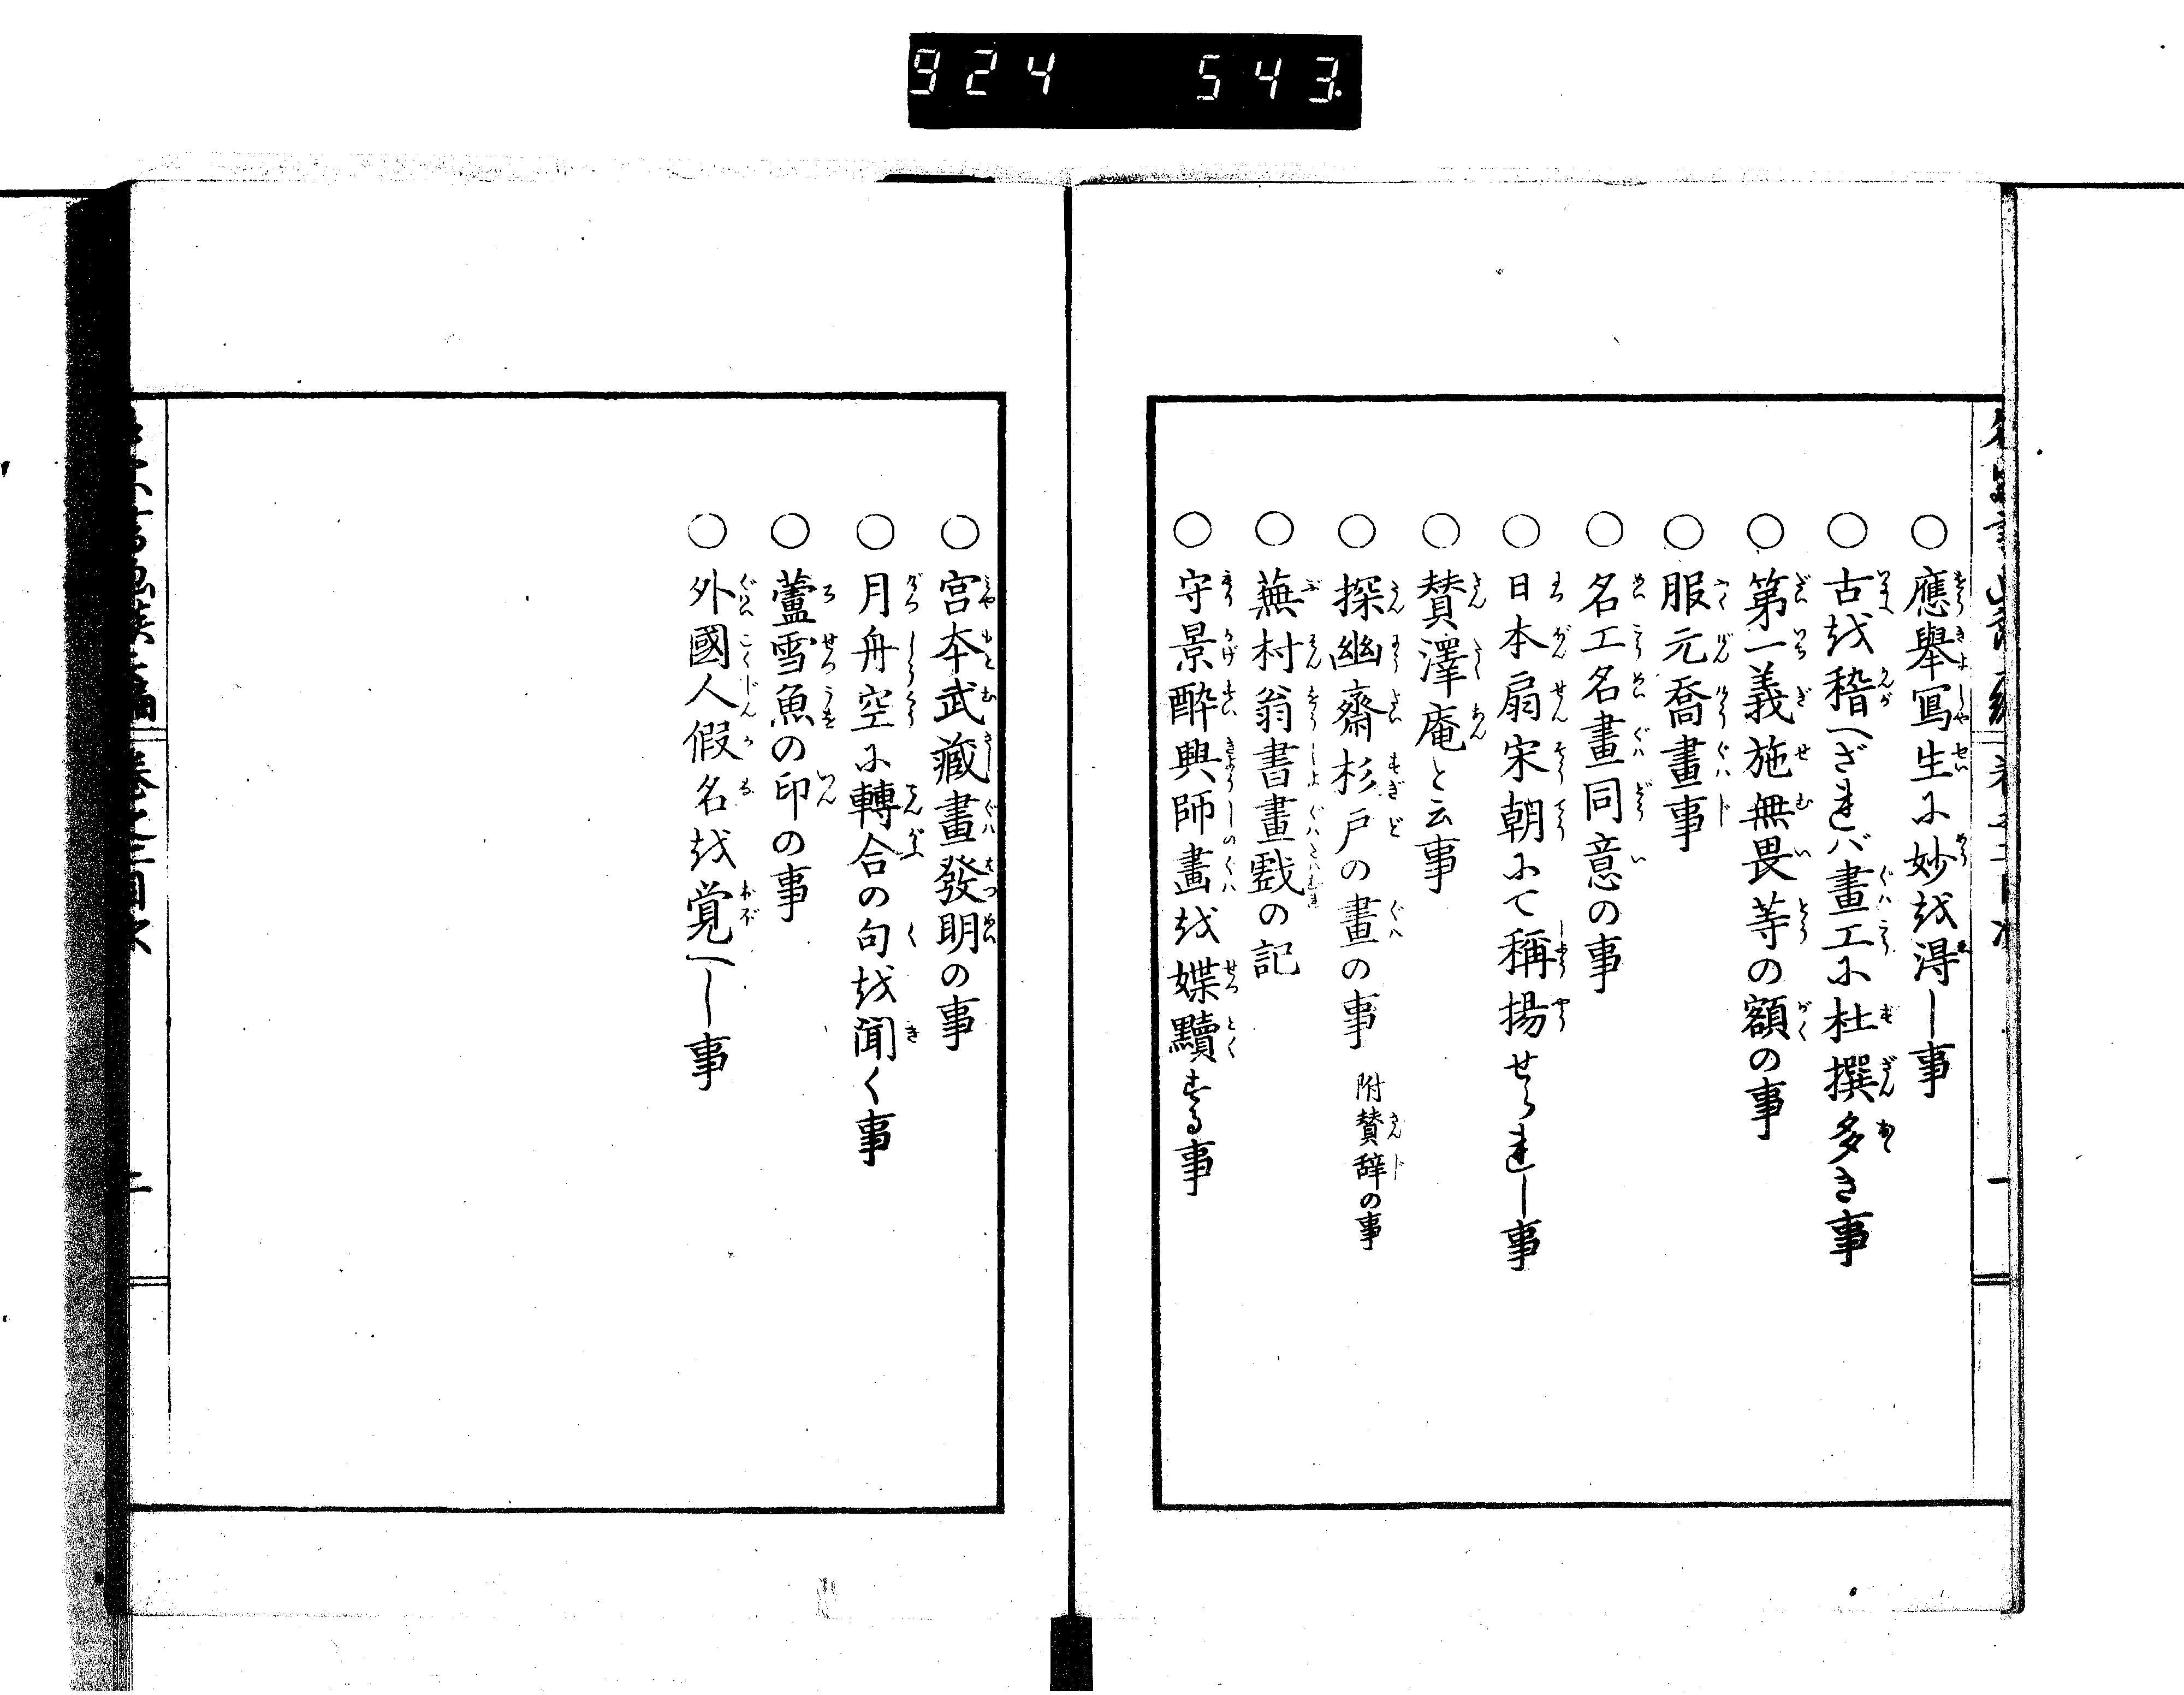 924 543.
○應舉寫生に妙を得し事
○古を稽へざれバ畫工に杜撰多き事
○第一義施無畏等の額の事
○服元喬畫事
○名工名畫同意の事
○日本扇宋朝にて稱揚せられし事
○賛澤庵と云事
○探幽齋杉戸の畫の事 附賛辞の事
○蕪村翁書畫戯の記
○守景酔興師畫を媟黷する事
○宮本武藏畫發明の事
○月舟空に轉合の句を聞く事
○蘆雪魚の印の事
○外國人假名を覚へし事
二